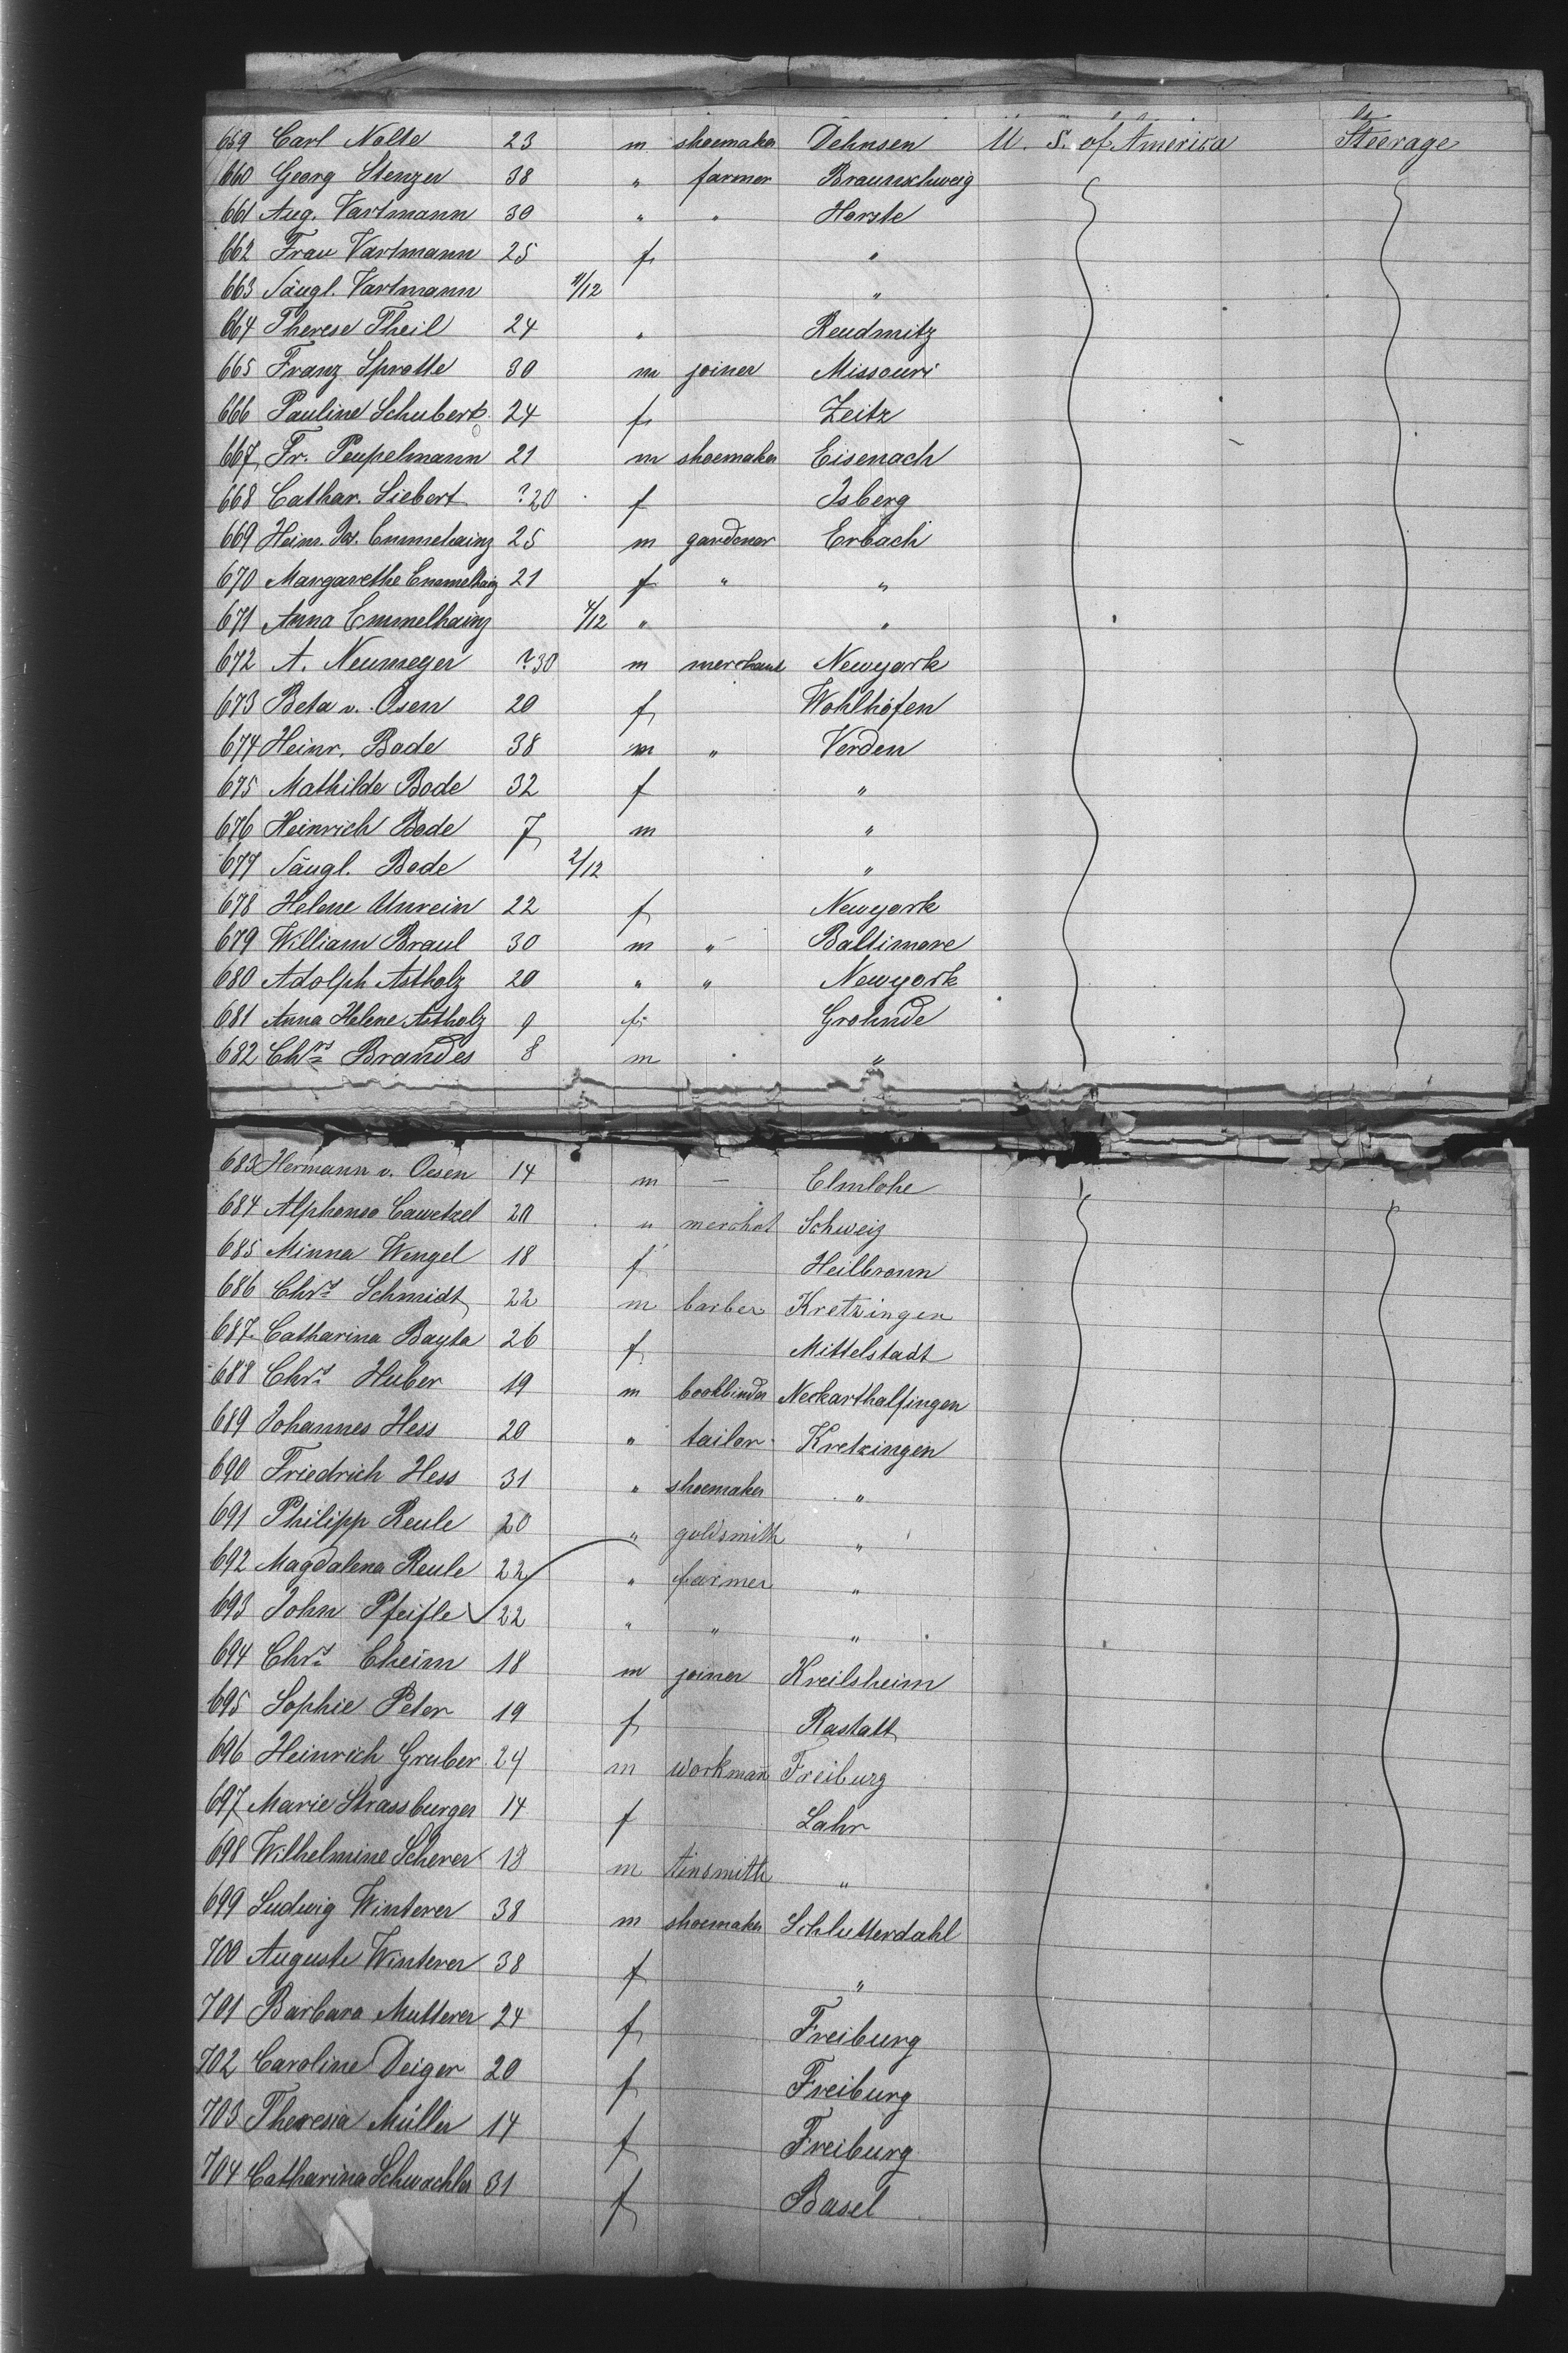 659 Carl Nolte 23 m shoemaker Dehnsen U. S. of America Steerage
660 Georg Stenzer 38 " farmer Braunschweig
661 Aug. Vartmann 30 " " Horste
662 Frau Vartmann 25 f "
663 Säugl. Vartmann 11/12 "
664 Therese Theil 24 " Reudnitz
665 Franz Sprotte 30 m joiner Missouri
666 Pauline Schubert 24 f Zeitz
667 Fr. Peupelmann 21 m shoemaker Eisenach
668 Cathar. Siebert ?20 f Isberg
669 Heinr. Emmelhainz 25 m gardener Erbach
670 Margarethe Emmelhainz 21 f " "
671 Anna Emmelhainz 4/12 " "
672 A. Neumeyer ?30 m merchant Newyork
673 Beta v. Osen 20 f Wohlhöfen
674 Heinr. Bode 38 m " Verden
675 Mathilde Bode 32 f "
676 Heinrich Bode 7 m "
677 Säugl. Bode 2/12 "
678 Helene Unrein 22 f Newyork
679 William Braul 30 m " Baltimore
680 Adolph Astholz 20 " " Newyork
681 Anna Helene Astholz 9 f Grohnde
682 Chrs Brandes 8 m "
683 Hermann v. Oesen 14 m — Elmlohe
684 Alphonso Cawetzel 20 " merchat Schweiz
685 Minna Wengel 18 f Heilbronn
686 Chrs Schmidt 22 m barber Kretzingen
687 Catharina Bayta 26 f Mittelstadt
688 Chrs Huber 19 m bookbinder Neckarthalfingen
689 Johannes Hess 20 " tailor Kretzingen
690 Friedrich Hess 31 " shoemaker "
691 Philipp Reule 20 " goldsmith "
692 Magdalena Reule 22 " farmer "
693 John Pfeifle 22 " " "
694 Chrs Cheim 18 m joiner Kreilsheim
695 Sophie Peter 19 f Rastatt
696 Heinrich Gruber 24 m workman Freiburg
697 Marie Strassburger 14 f Lahr
698 Wilhelmine Scherer 18 m tinsmith "
699 Ludwig Winterer 38 m shoemaker Schlutterdahl
700 Auguste Winterer 38 f "
701 Barbara Mutterer 24 f Freiburg
702 Caroline Deiger 20 f Freiburg
703 Theresia Müller 14 f Freiburg
704 Catharina Schwachler 31 f Basel